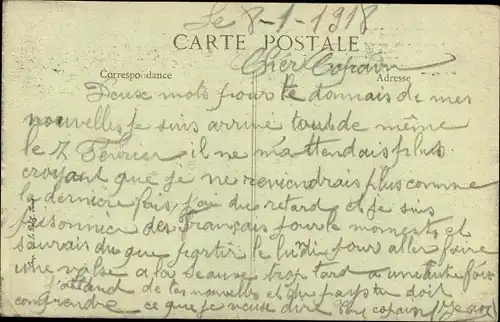 Le 8-1-1918
CARTE POSTALE
Cher Copain
Correspondance
Adresse
Deux mots pour te donnais de mes
nouvelles je suis arrivé tout de même
le 7 Février il ne m'attendais plus
croyant que je ne reviendrais plus comme
la dernière fois j'ai du retard et je suis
prisonnier des Français pour le moment et
saurais du que partir le lundi pour aller faire
une valse a la trop tard a une autre fois
j'attend de tes nouvelles et du pays tu doit
comprendre ce que je veuse dire ton copain Jean